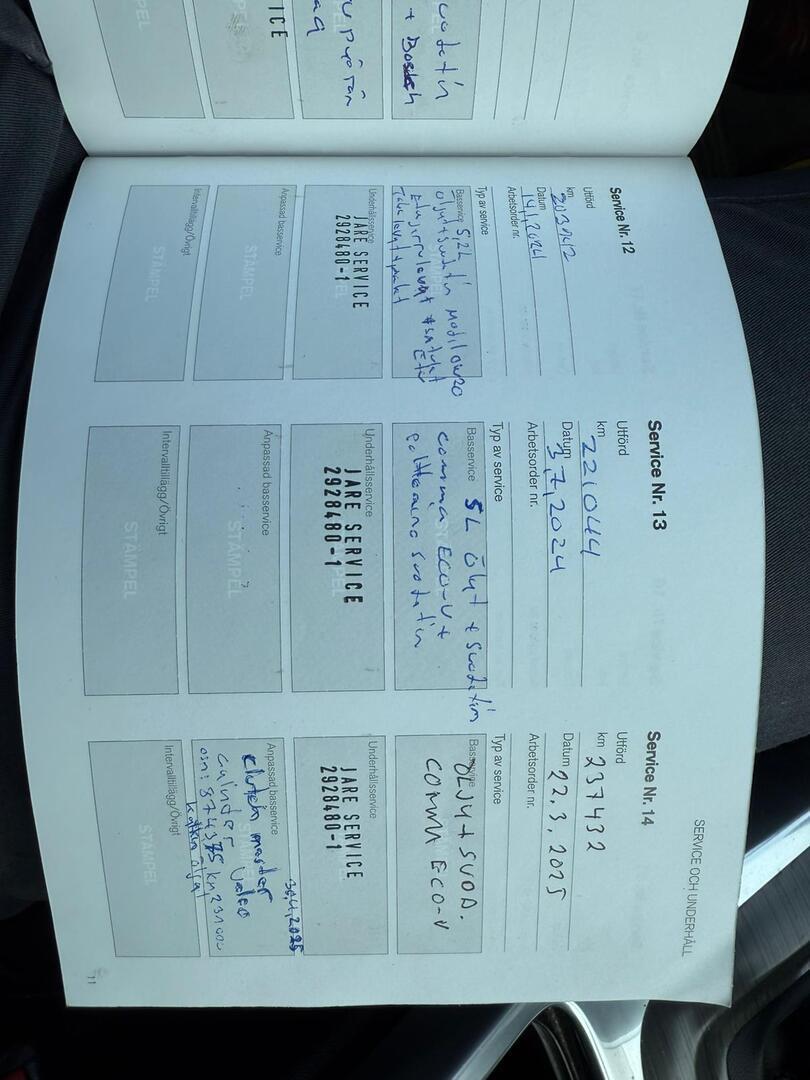 SERVICE OCH UNDERHÅLL
Service Nr. 12
Utförd
km
203042
Datum
14,1,2024
Arbetsorder nr.
Typ av service
Basservice 5,2L
öljyt + suodatin mobil 0w20
STÄMPEL
Underhållsservice
JARE SERVICE
2928480-1
Anpassad basservice
STÄMPEL
Intervalltillägg/Övrigt
STÄMPEL
Service Nr. 13
Utförd
km
221044
Datum
3,7,2024
Arbetsorder nr.
Typ av service
Basservice 5L Öljyt + suodatin
comma ECO-V +
polttoaine suodatin
Underhållsservice
JARE SERVICE
2928480-1
Anpassad basservice
STÄMPEL
Intervalltillägg/Övrigt
STÄMPEL
Service Nr. 14
Utförd
km 237432
Datum 22.3.2025
Arbetsorder nr.
Typ av service
Basservice
ÖLJY + SUOD.
COMMA ECO-V
Underhållsservice
JARE SERVICE
2928480-1
30,4,2025
Anpassad basservice
clutch master
cylinder Valeo
osn: 874375 km 231000
STÄMPEL
Intervalltillägg/Övrigt
STÄMPEL
11
uodatin
+ Bosch
STÄMPEL